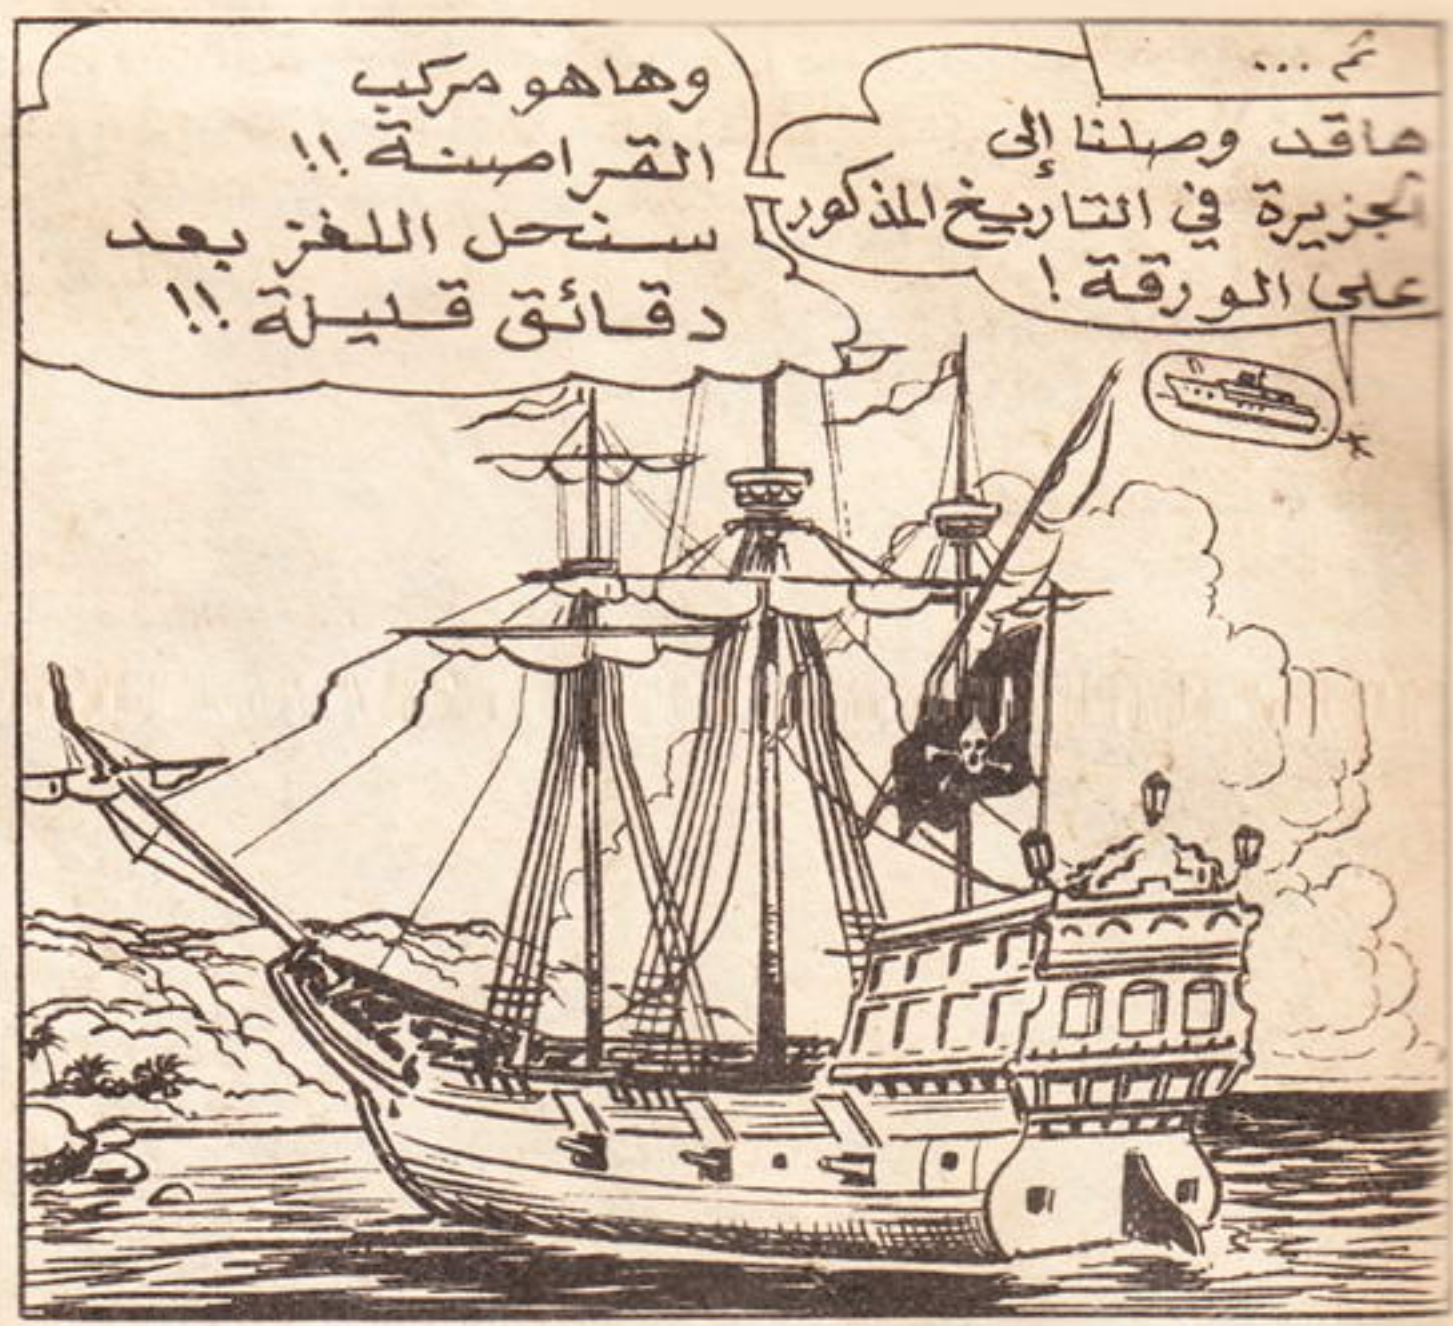 ثم ...
ها قد وصلنا إلى
الجزيرة في التاريخ المذكور
على الورقة !
وها هو مركب
القراصنة !!
سنحل اللغز بعد
دقائق قليلة !!